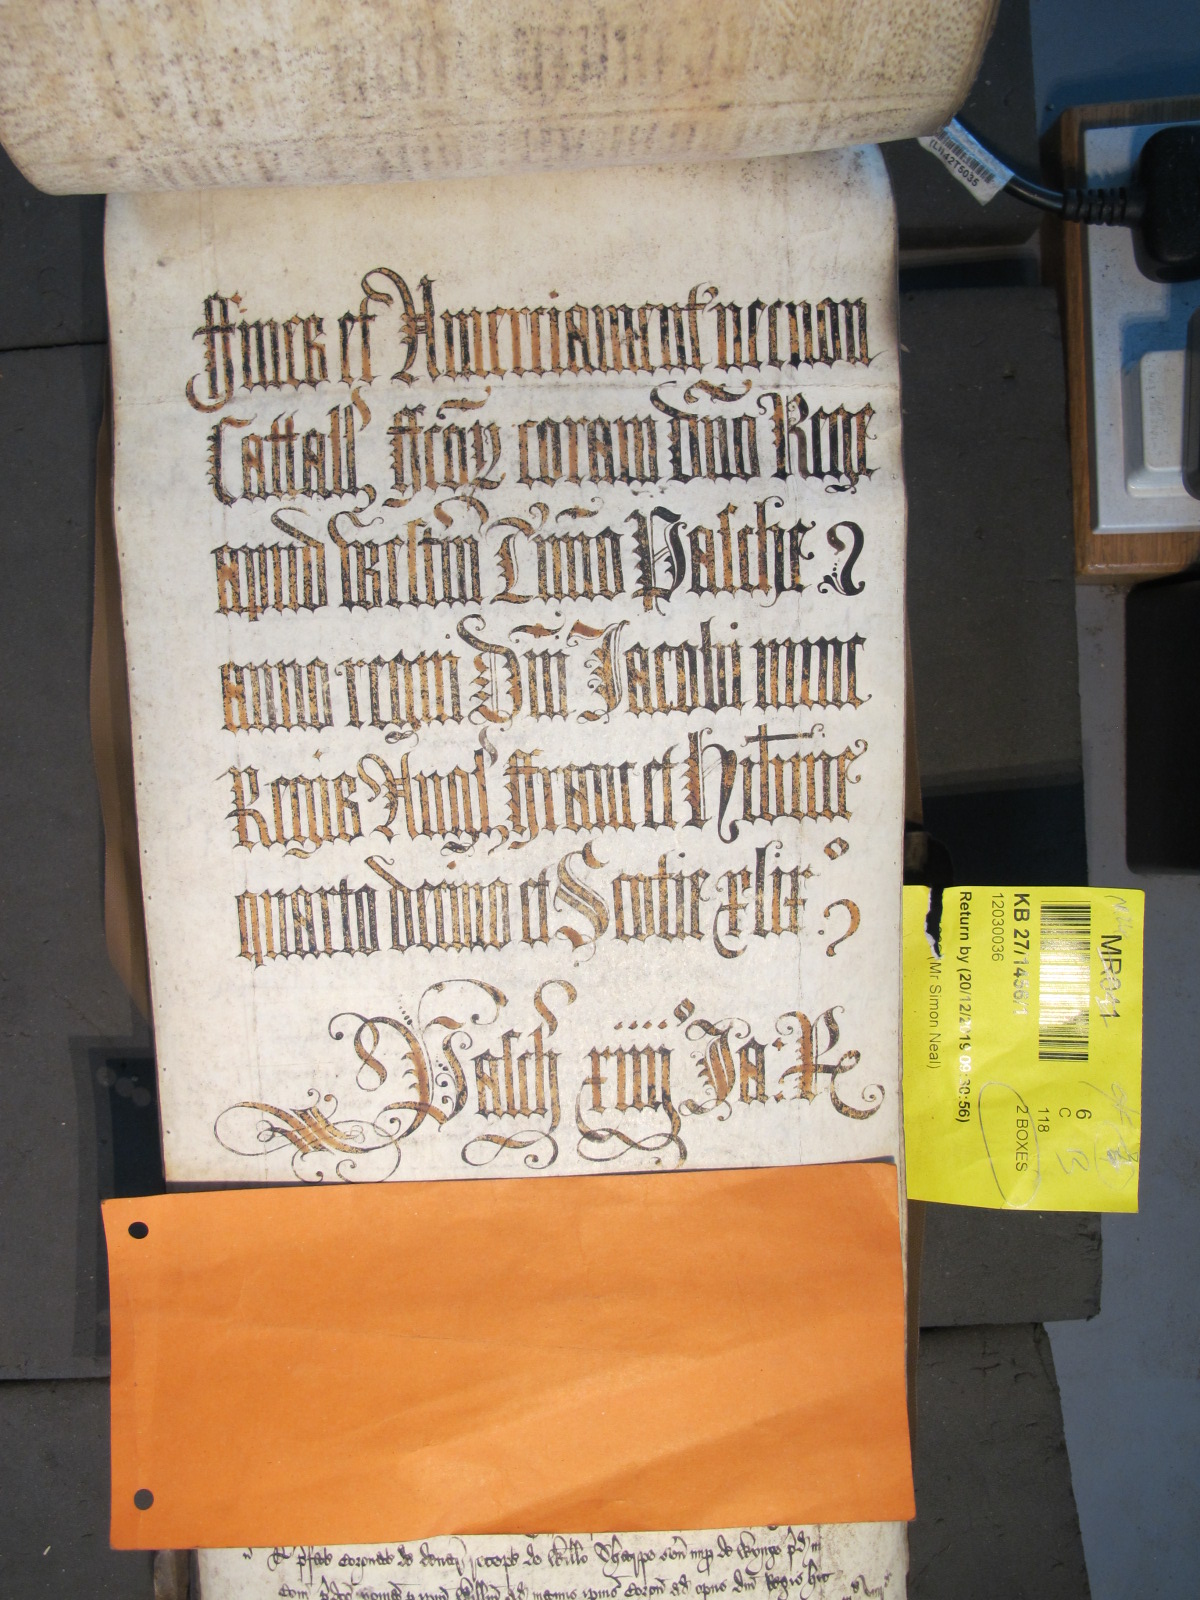 ffines et Amerciament' necnon
Cattall' ffelon coram d̄no Rege
apud Westm̄ T'mino Pasche
anno regni Dn̄i Jacobi nunc
Regis Angl' ffranc et Hib̄nie
quarto decimo et Scotie xlix°
Pasch xiiij° Ja: R
(L)L42T5035
MR041
6
C
118
2 BOXES
KB 27/1456/1
12030036
Return by (20/12/2019 09:30:56)
(Mr Simon Neal)
de Willo Sharpe